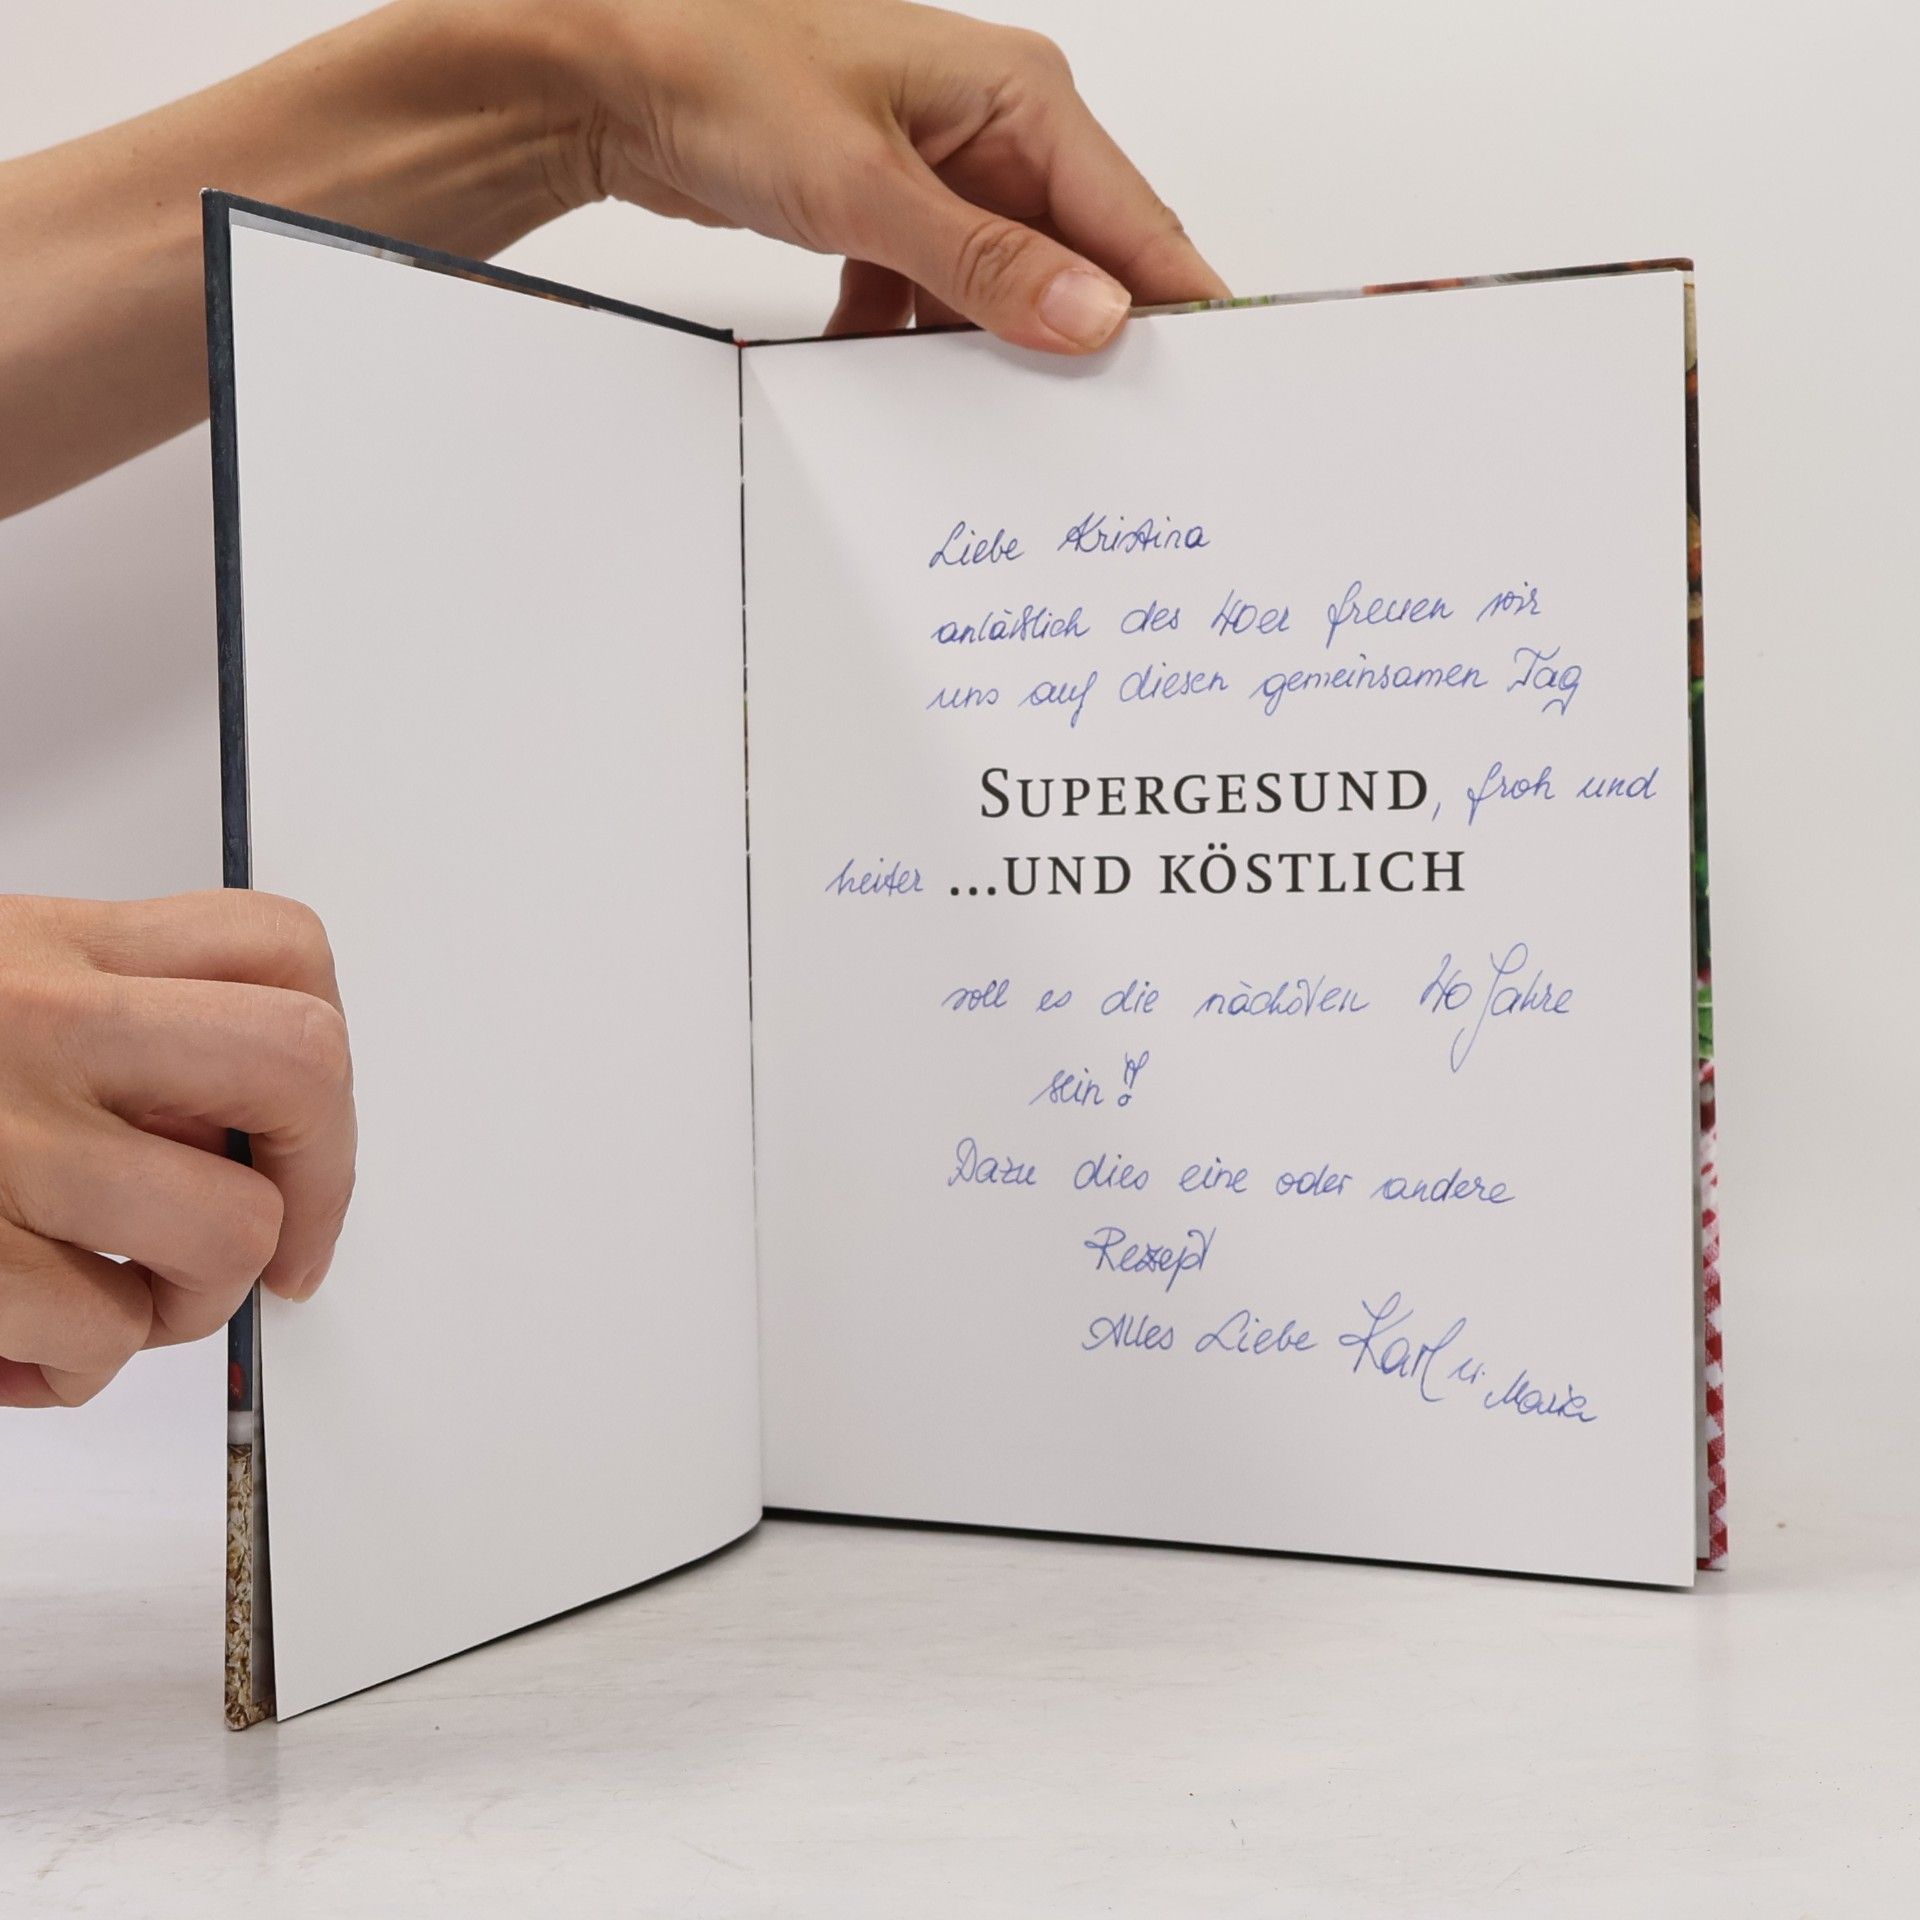 Liebe Kristina
anläßlich des 40er freuen wir
uns auf diesen gemeinsamen Tag
SUPERGESUND, froh und
heiter ...UND KÖSTLICH
soll es die nächsten 40 Jahre
sein!
Dazu dies eine oder andere
Rezept
Alles Liebe Karl u. Maria